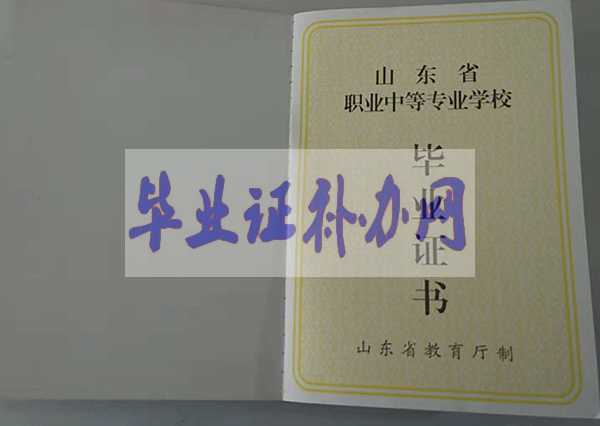 山东省
职业中等专业学校
毕业证书
毕业证补办网
山东省教育厅制